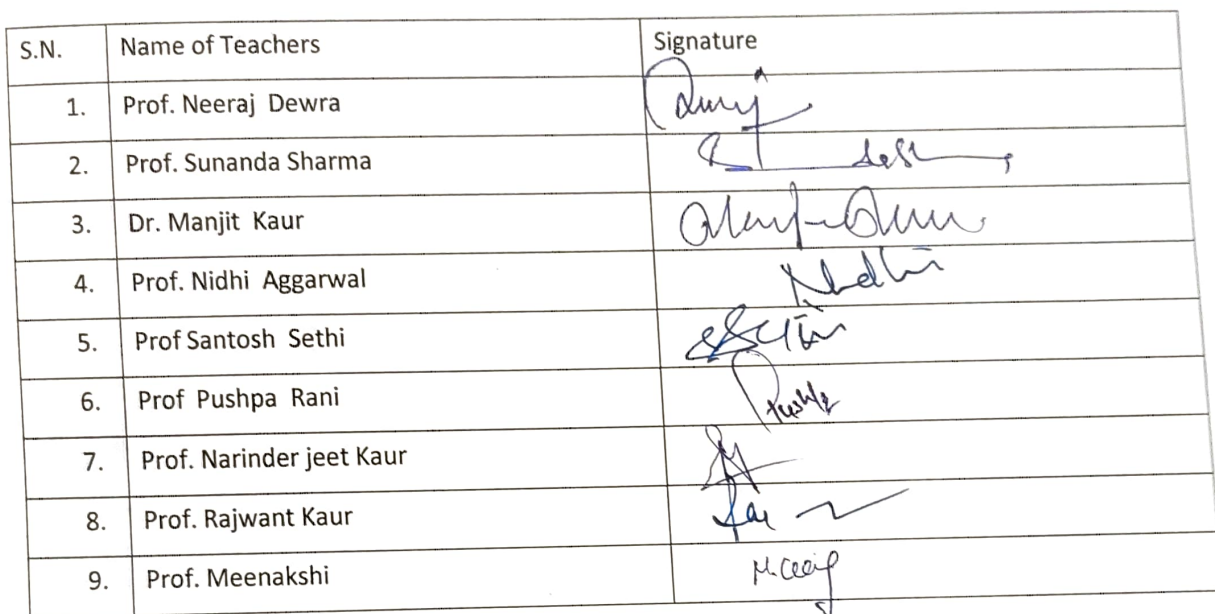 S.N. Name of Teachers Signature
1. Prof. Neeraj Dewra
2. Prof. Sunanda Sharma
3. Dr. Manjit Kaur
4. Prof. Nidhi Aggarwal Nidhi
5. Prof Santosh Sethi
6. Prof Pushpa Rani Pushpa
7. Prof. Narinder jeet Kaur
8. Prof. Rajwant Kaur
9. Prof. Meenakshi